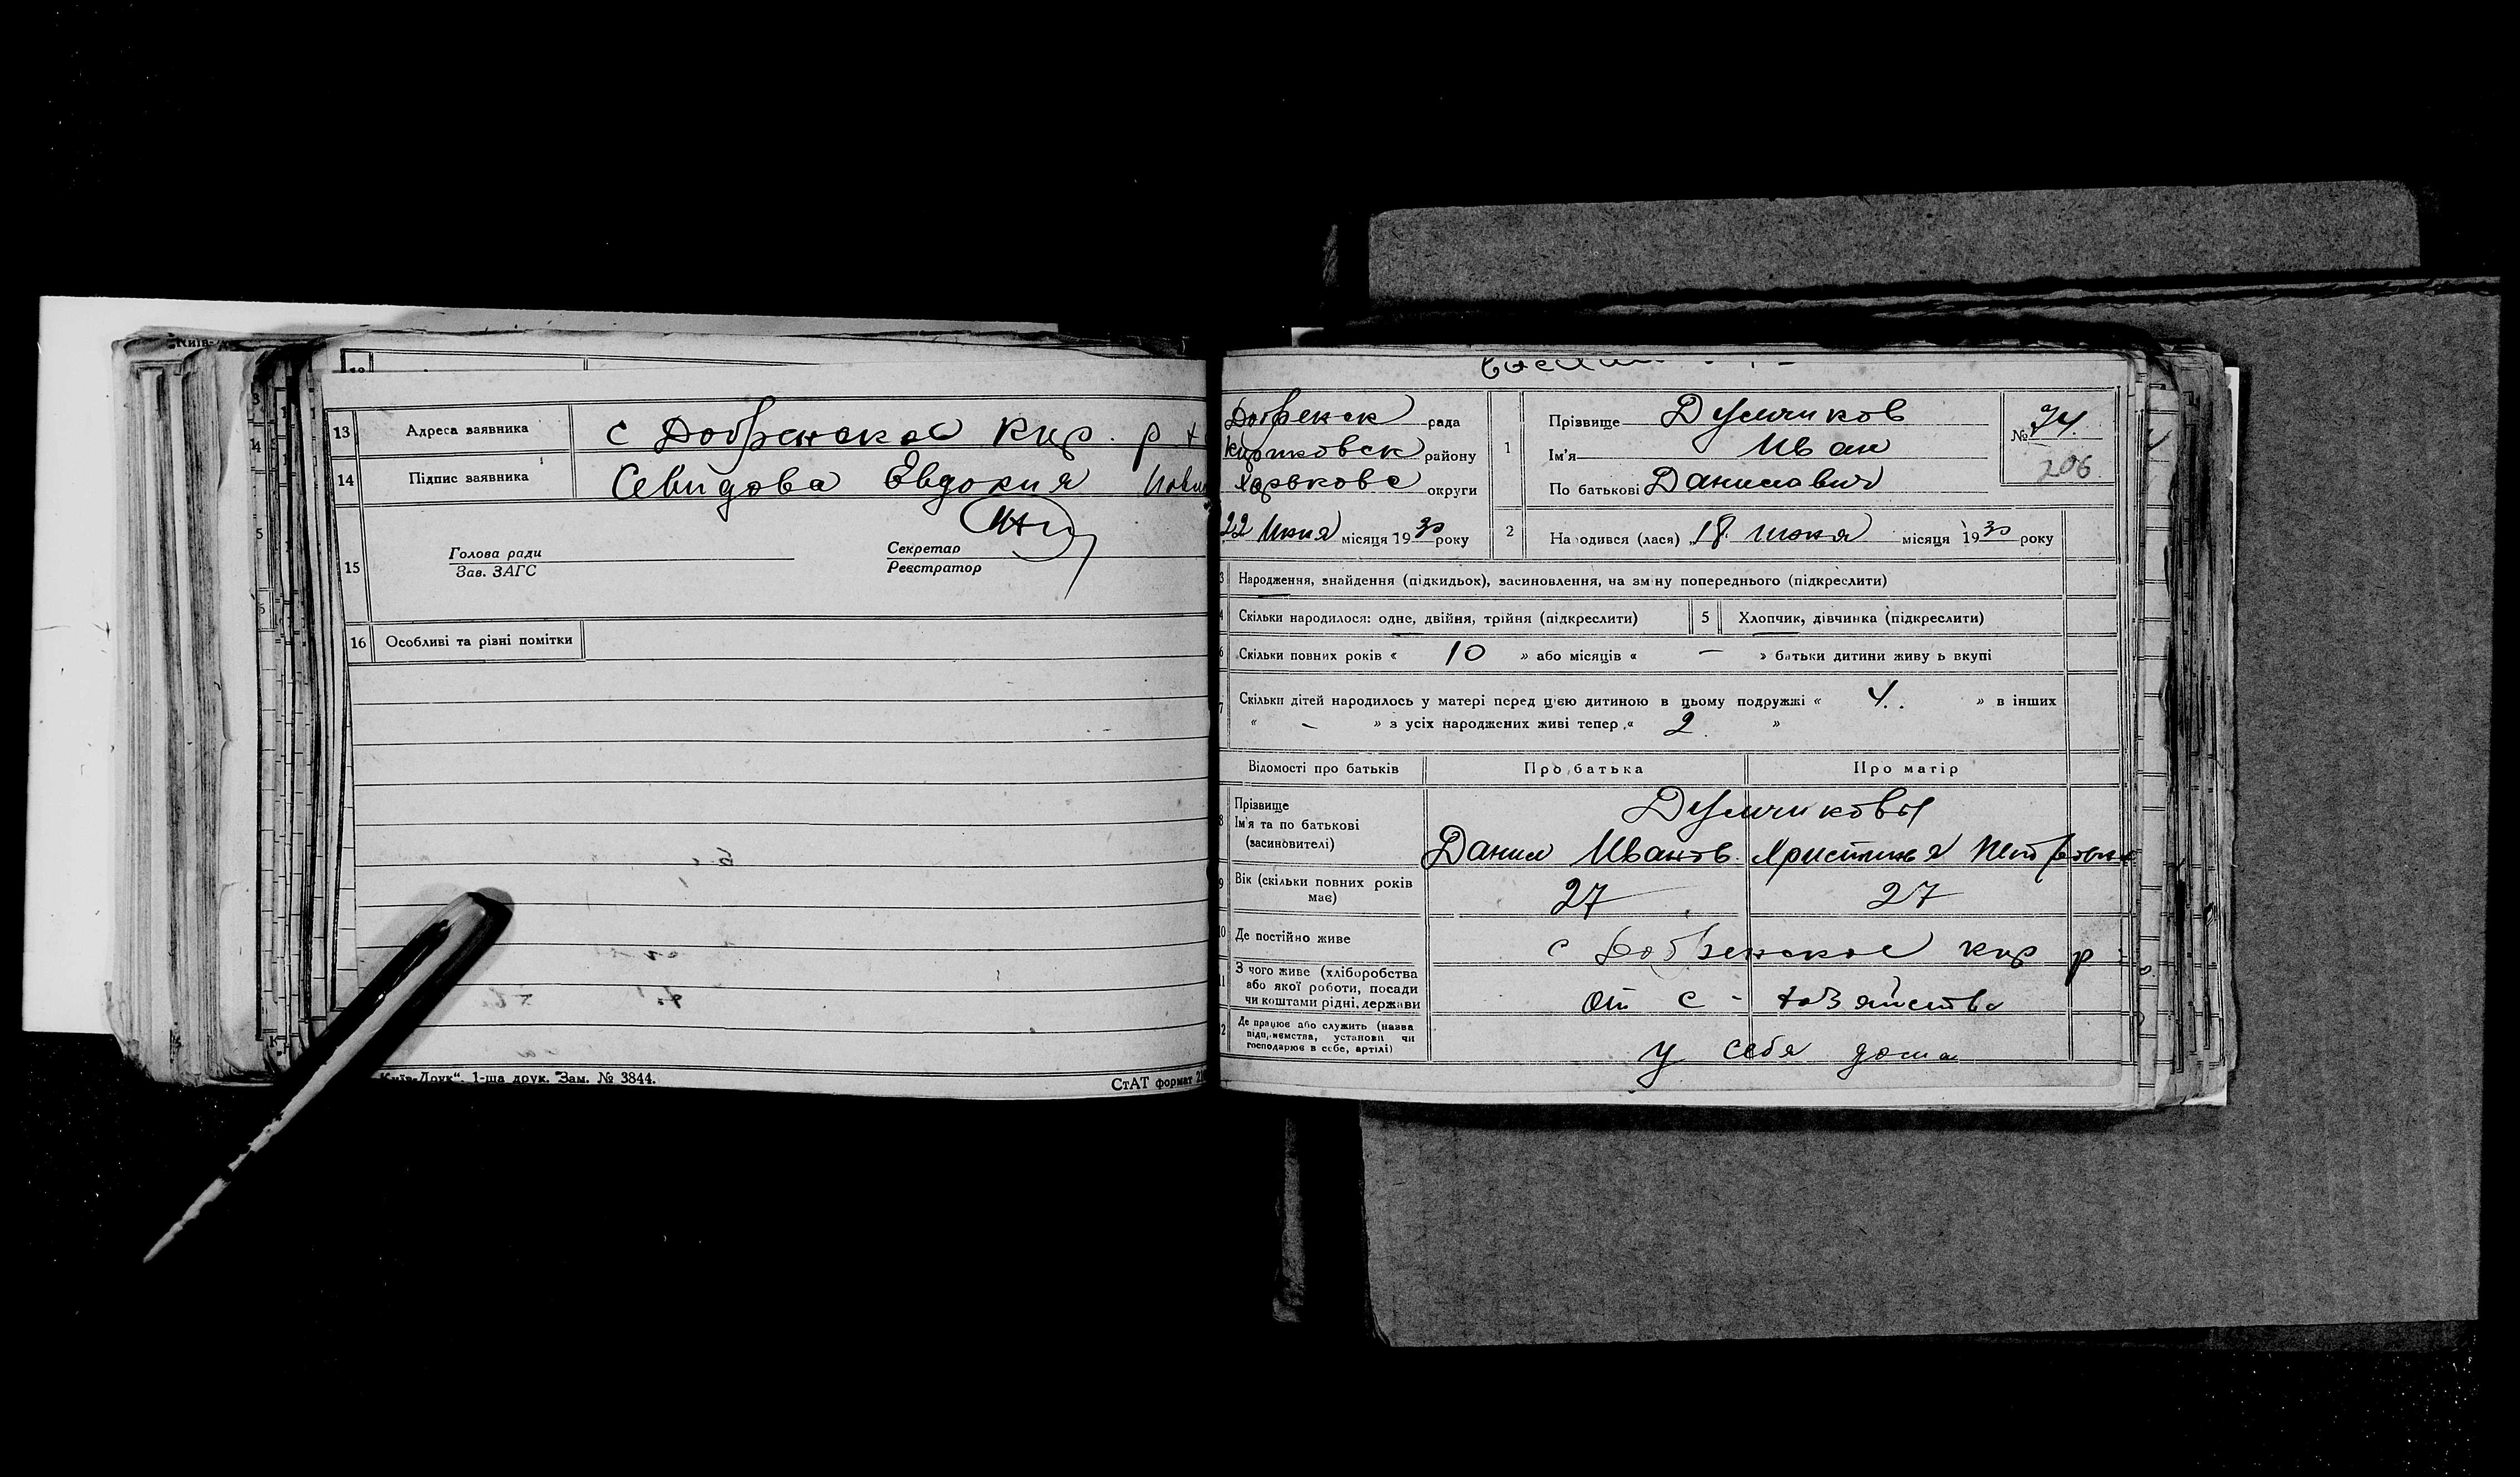 13 Адреса заявника с Добренское Кир. р х
14 Підпис заявника Свидова Евдокия
15 Голова ради Секретар
Зав. ЗАГС Реєстратор
16 Особливі та різні помітки
Київ-Друк“. 1-ша друк. Зам. № 3844.
СтАТ формат
Добренск рада
района Харьковс округи
22 Июня місяця 1930 року
1 Прізвище Думчиков
Ім'я Иван
По батькові Данилович
№ 74.
206
2 Народився (лася) „18 июня місяця 1930 року
3 Народження, знайдення (підкидьок), засиновлення, на зміну попереднього (підкреслити)
4 Скільки народилося: одне, двійня, трійня (підкреслити) 5 Хлопчик, дівчинка (підкреслити)
6 Скільки повних років « 10 » або місяців « — » батьки дитини живуть вкупі
7 Скільки дітей народилось у матері перед цією дитиною в цьому подружжі « 4. » в інших
« – » з усіх народжених живі тепер « 2 »
Відомості про батьків Про батька Про матір
8 Прізвище Думчиковы
Ім'я та по батькові
(засиновителі) Данил Иванов. Христинья Петровна
9 Вік (скільки повних років
має) 27 27
10 Де постійно живе с Добренское кир р
11 З чого живе (хліборобства
або якої роботи, посади
чи коштами рідні, держави от с - хозяйства
12 Де працює або служить (назва
підприємства, установи чи
господарює в себе, артілі) у себя дома